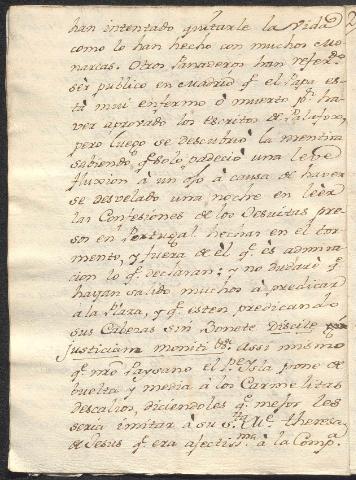 han intentado quitarle la Vida
como lo han hecho con muchos Mo-
narcas. Otros Panaderos han refer.do
sèr publico en Madrid q.e el Papa es-
tà mui enfermo ò muerto p.r ha-
ver aprovado los escritos de Palafox,
pero luego se descubriò la mentira
sabiendo q.e solo padeciò una leve
fluxion à un ojo à causa de haver
se desvelado una noche en leèr
las Confesiones de los Jesuitas pre-
sos en Portugal hechas en el tor-
mento, y fuera de èl q.e ès admira-
cion lo q.e declaran; y no dudarè q.e
hayan salido muchos à predicar
a la Plaza, y q.e esten predicando
sus Cabezas sin Bonete Discite
justiciam moniti &c. Assi mismo
q.e nro Paysano el P.e Ysla pone de
buelta y media à los Carmelitas
descalzos, diciendoles q.e mejor les
seria imitar à su S.ta M.e Theresa
de Jesus q.e era afectis.ma à la Comp.a